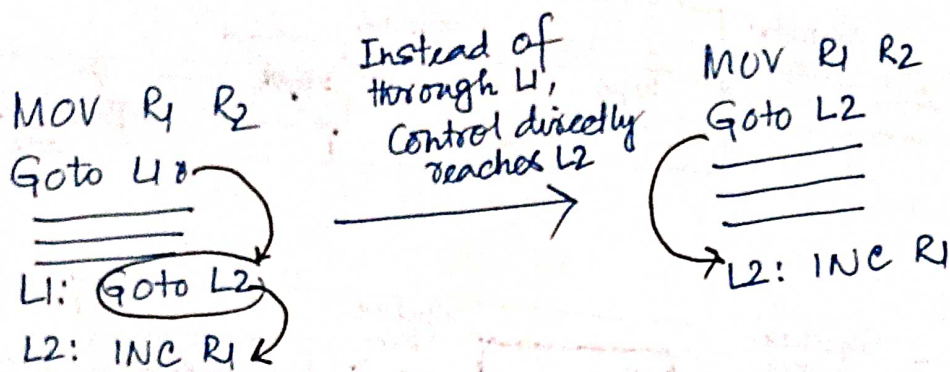 MOV R1 R2
Goto L1
L1: Goto L2
L2: INC R1
Instead of
through L1,
Control directly
reaches L2
MOV R1 R2
Goto L2
L2: INC R1